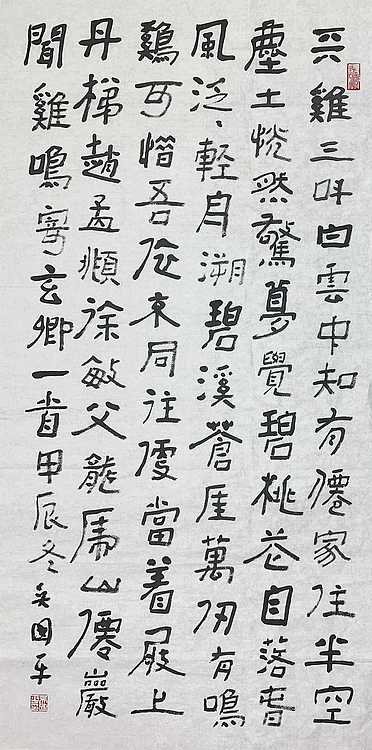 天雞三叫白雲中知有僊家住半空
塵土恍然驚夢覺碧桃花自落春
風泛泛輕舟溯碧溪蒼厓萬仞有鳴
鷄可惜吾未同往便當着屐上
丹梯趙孟頫徐敏父龍虎山僊巖
聞雞鳴寄玄卿一首甲辰冬吴国平